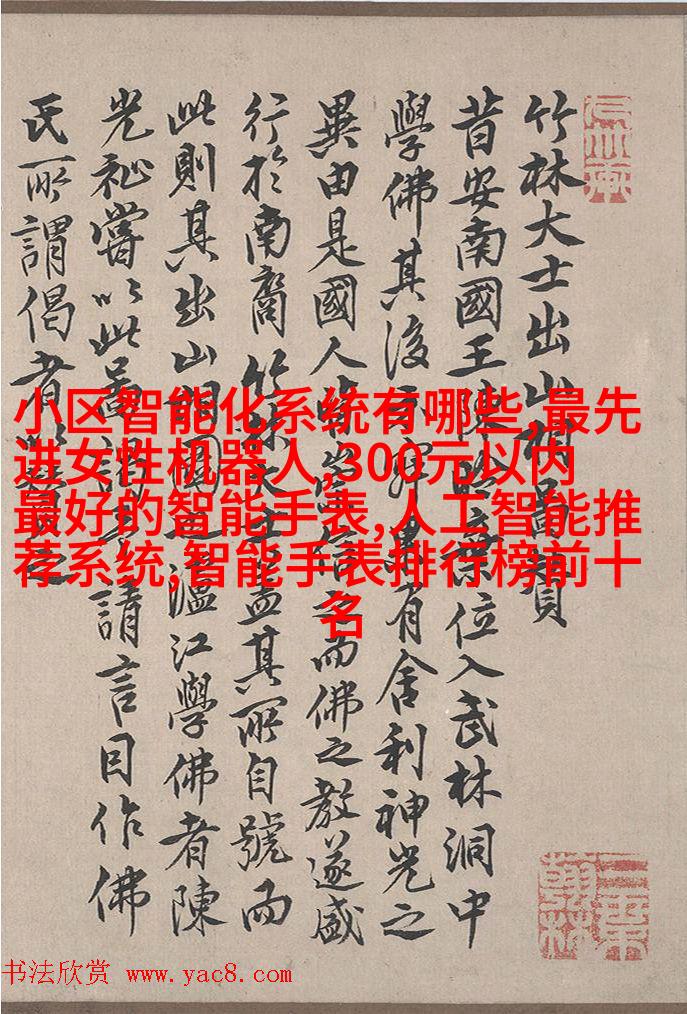 竹林大士出山圖贊
昔安南國王陳棄位入武林洞中
學佛其後示有舍利神光之
異由是國人皆信之而佛之教遂盛
行於南裔竹林大士蓋其所自號而
此則其出山圖江學佛者陳
光祉嘗以此請言目作佛
氏所謂偈者
小区智能化系统有哪些,最先
进女性机器人,300元以内
最好的智能手表,人工智能推
荐系统,智能手表排行榜前十
名
书法欣赏 www.yac8.com